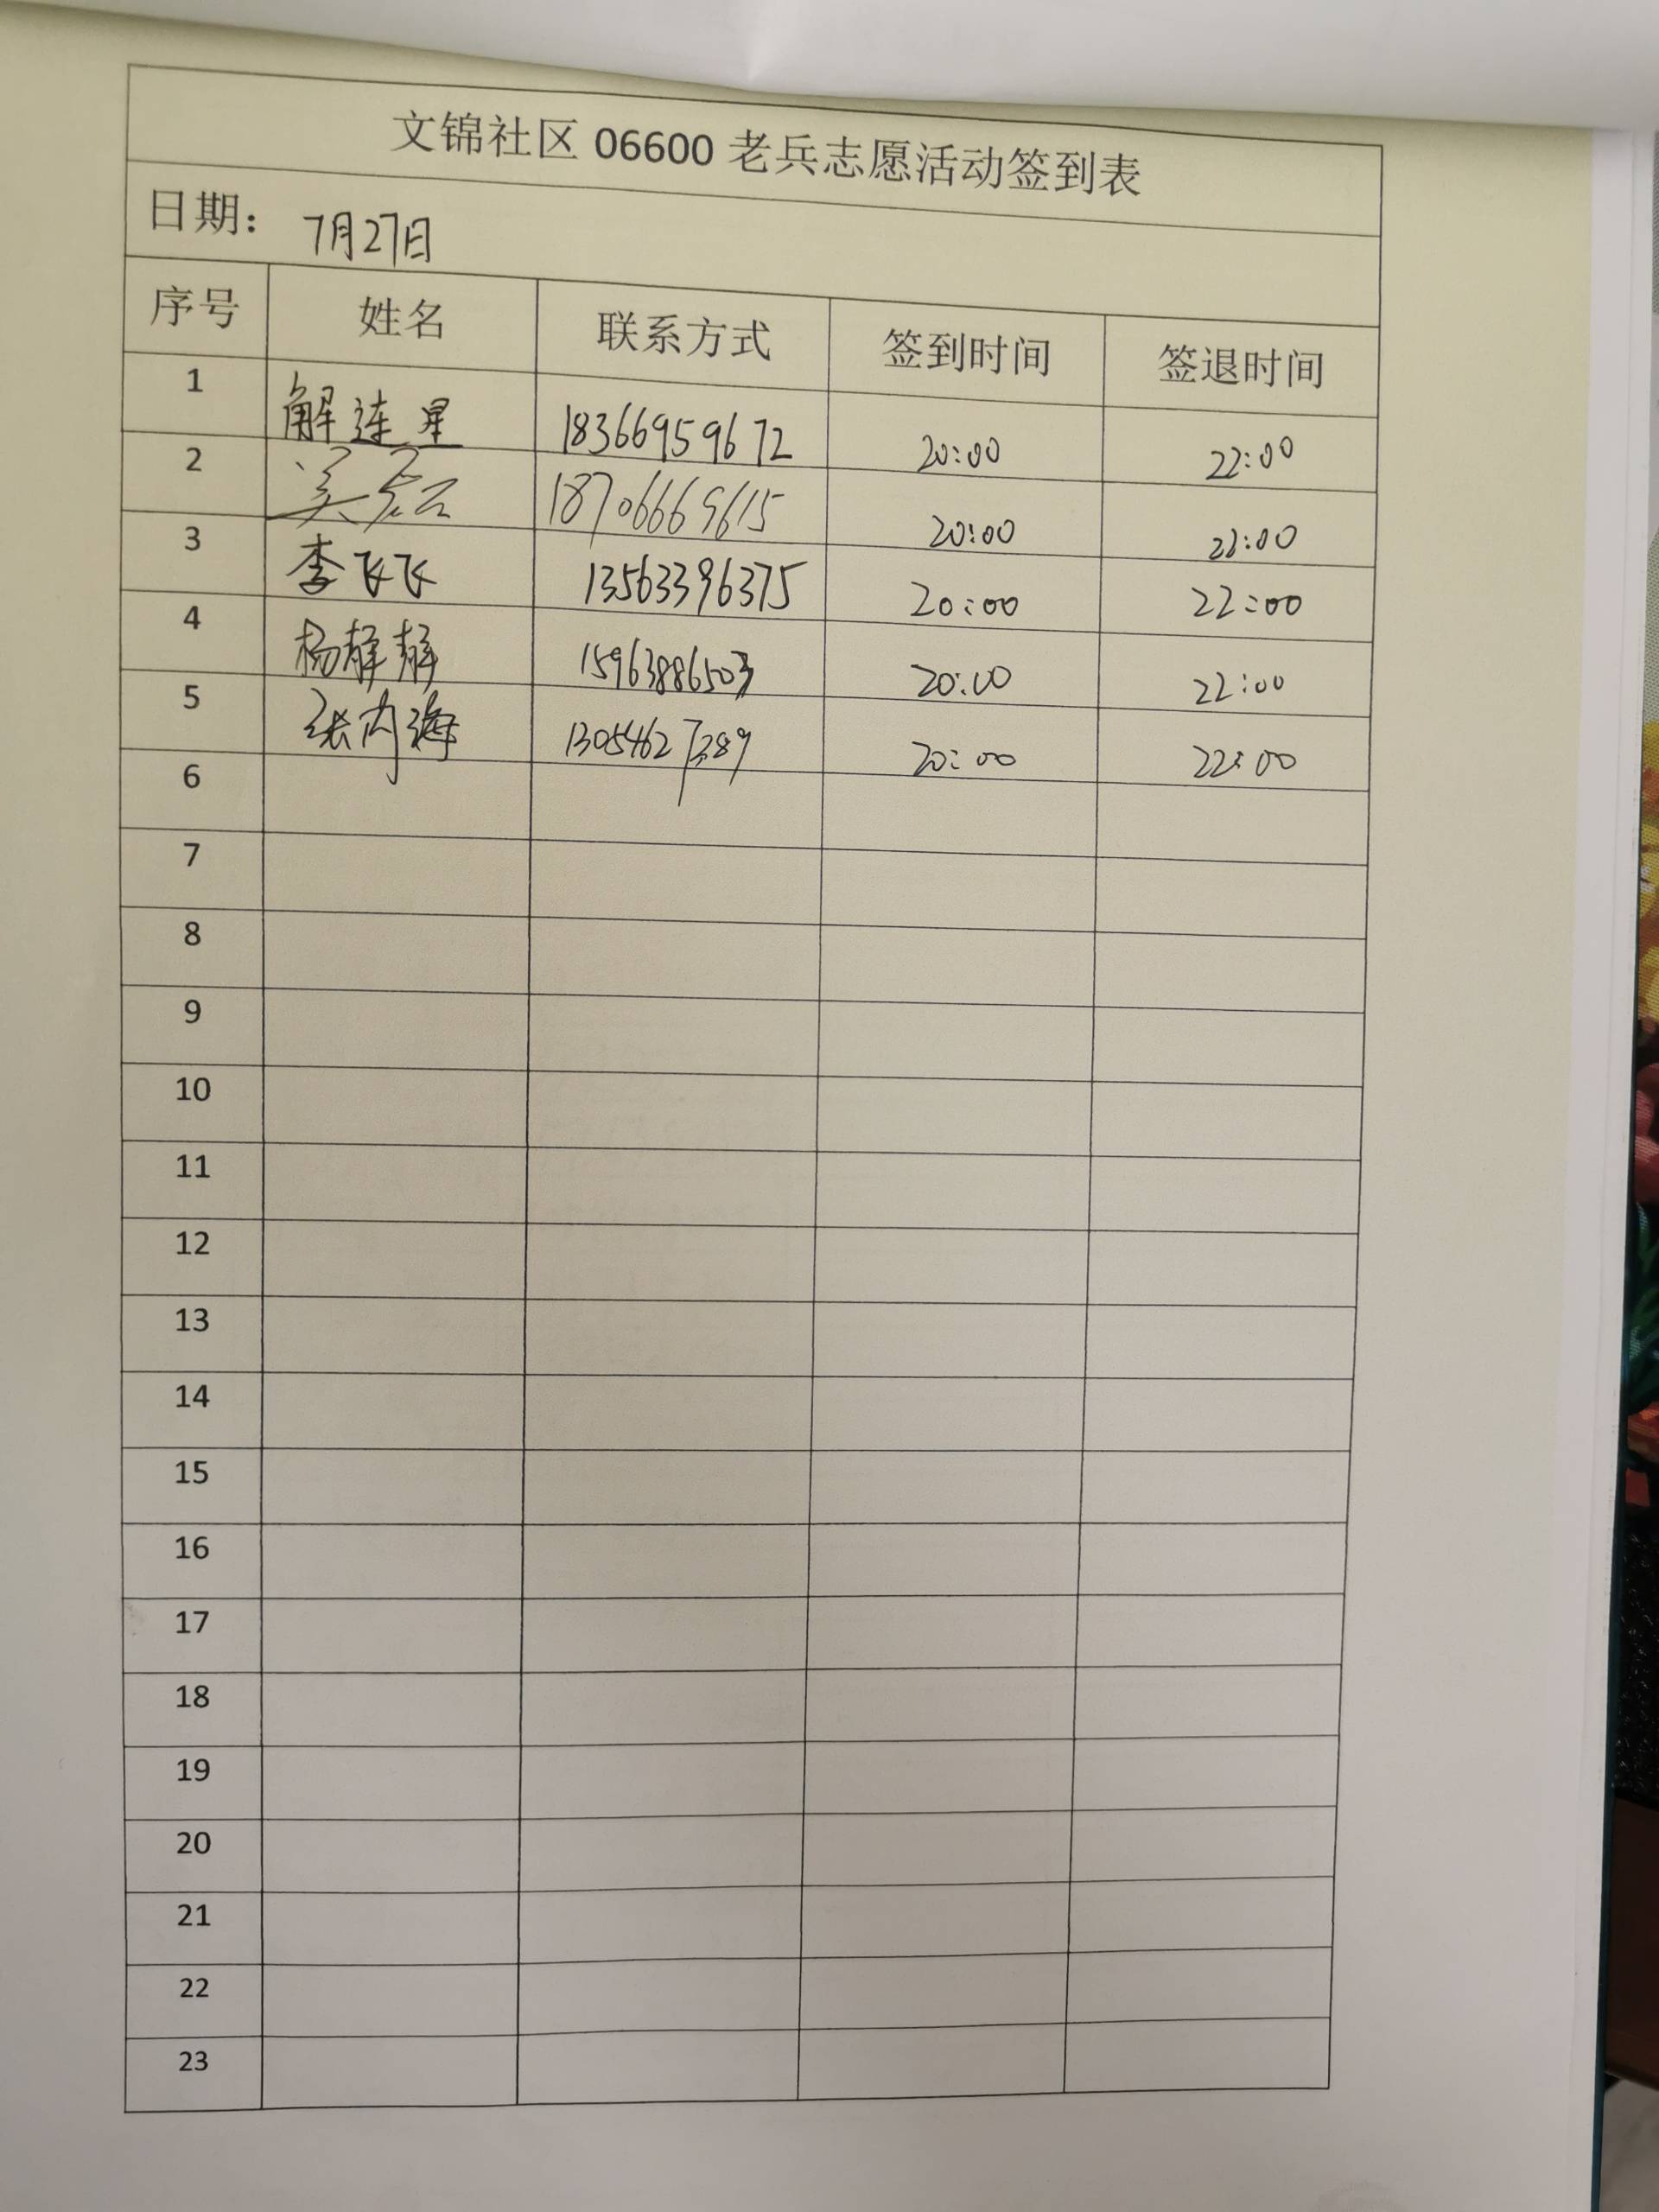 文锦社区 06600 老兵志愿活动签到表
日期： 7月27日
序号 姓名 联系方式 签到时间 签退时间
1 解连星 18366959672 20:00 22:00
2 18706669615 20:00 22:00
3 李飞飞 13563396375 20:00 22:00
4 杨静静 15963886503 20:00 22:00
5 张内海 13054627289 20:00 22:00
6
7
8
9
10
11
12
13
14
15
16
17
18
19
20
21
22
23